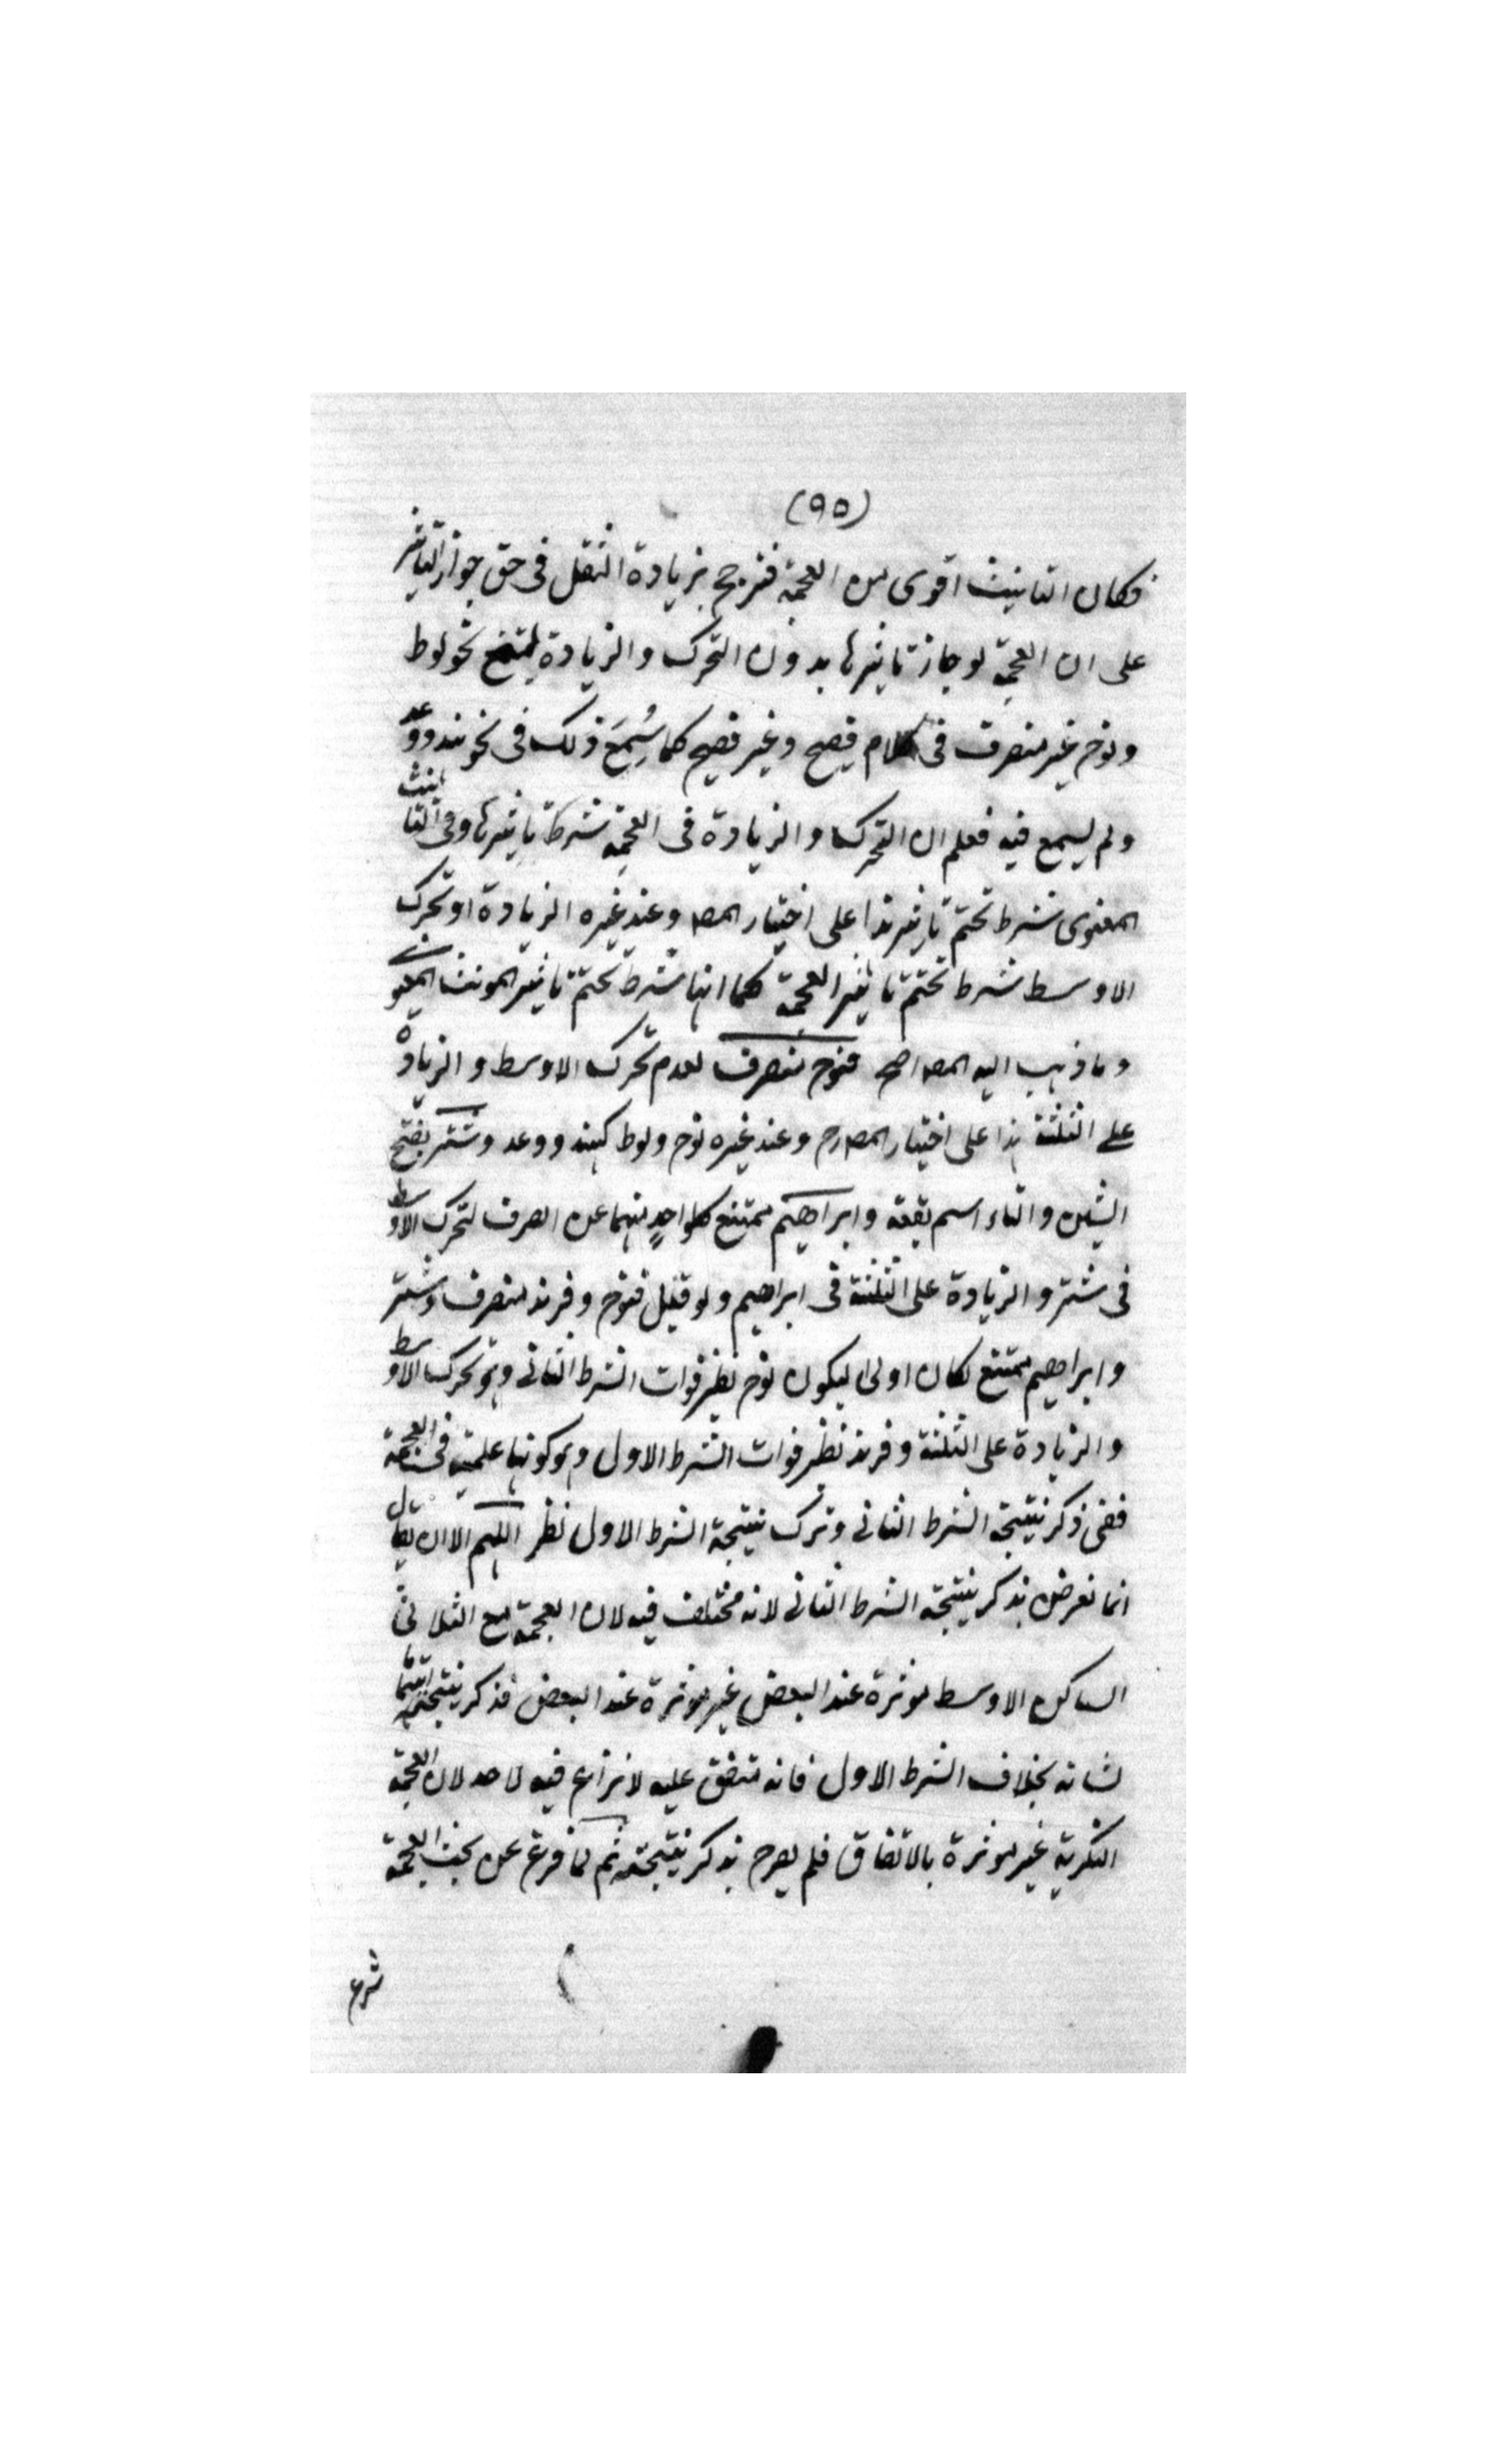 (٩٥)
فكان التانيث اقوى من العجمة فترجح بزيادة الثقل فى حق جواز التاثير
على ان العجمة لو جاز تاثيرها بدون التحرك والزيادة لسمع نحو لوط
ونوح غير منصرف فى كلام فصيح وغير فصيح كما سُمِعَ ذلك فى نحو هند ودعد
ولم يسمع فيه فعلم ان التحرك والزيادة فى العجمة شرط تاثيرها وفى التانيث
المعنوى شرط تحتم تاثيره هذا على اختيار المصـ وعند غيره الزيادة او تحرك
الاوسط شرط تحتم تاثير العجمة كما انها شرط تحتم تاثير المونث المعنوى
وما ذهب اليه المصـ اصح فنوح منصرف لعدم تحرك الاوسط والزيادة
على الثلثة هذا على اختيار المصـ رح وعند غيره نوح ولوط كهند ودعد وشتر بفتح
الشين والتاء اسم بقعة وابراهيم ممتنع كلواحدٍ منهما عن الصرف لتحرك الاوسط
فى شتر والزيادة على الثلثة فى ابراهيم ولو قيل فنوح وفرند منصرف وشتر
وابراهيم ممتنع لكان اولى ليكون نوح نظير فوات الشرط الثانى وهو تحرك الاوسط
والزيادة على الثلثة وفرند نظير فوات الشرط الاول وهو كونها علمية فى العجمة
ففى ذكر نتيجة الشرط الثانى وترك نتيجة الشرط الاول نظر اللهم الا ان يقال
انما تعرض بذكر نتيجة الشرط الثانى لانه مختلف فيه لان العجمة مع الثلاثى
الساكن الاوسط موثرة عند البعض غير موثرة عند البعض فذكر نتيجته اهتماما
لشانه بخلاف الشرط الاول فانه متفق عليه لا نزاع فيه لاحد لان العجمة
النكرية غير موثرة بالاتفاق فلم يصرح بذكر نتيجته ثم لما فرغ عن بحث العجمة
شرع